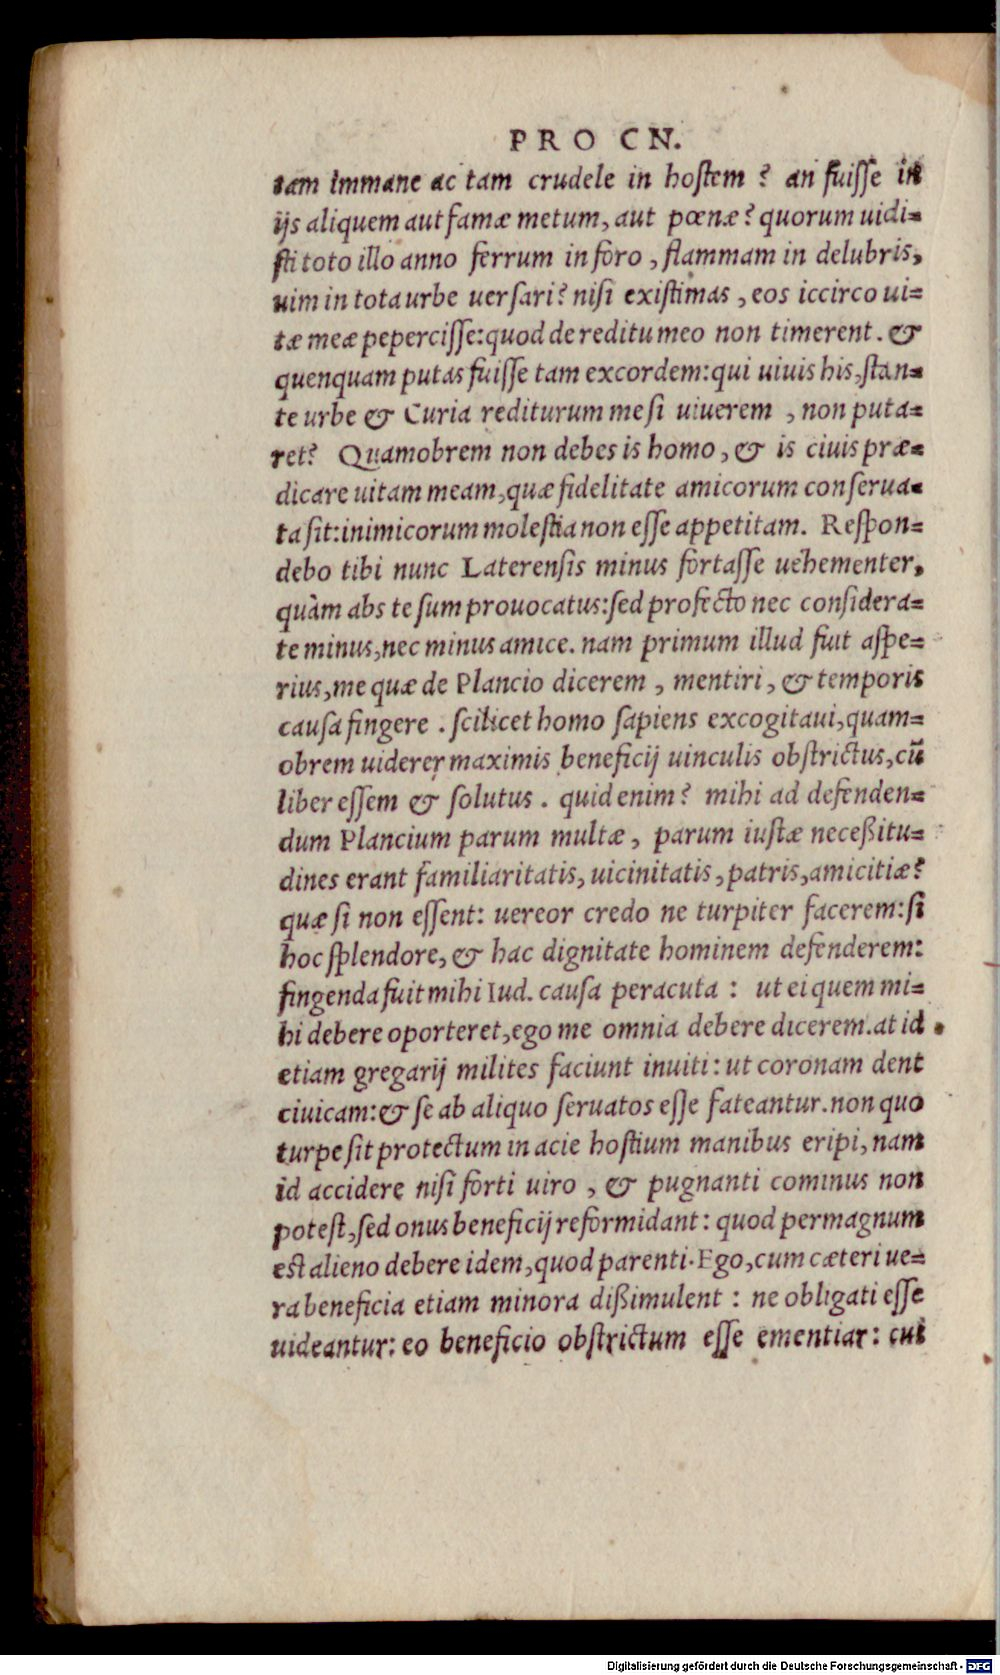 PRO CN.
tam immane ac tam crudele in hostem? an fuisse in
ijs aliquem aut famæ metum, aut pœnæ? quorum uidi=
sti toto illo anno ferrum in foro, flammam in delubris,
uim in tota urbe uersari? nisi existimas, eos iccirco ui=
tæ meæ pepercisse: quod de reditu meo non timerent. &
quenquam putas fuisse tam excordem: qui uiuis his, stan=
te urbe & Curia rediturum me si uiuerem, non puta=
ret? Quamobrem non debes is homo, & is ciuis præ=
dicare uitam meam, quæ fidelitate amicorum conserua=
ta sit: inimicorum molestia non esse appetitam. Respon=
debo tibi nunc Laterensis minus fortasse uehementer,
quàm abs te sum prouocatus: sed profecto nec considera=
te minus, nec minus amice. nam primum illud fuit aspe=
rius, me quæ de Plancio dicerem, mentiri, & temporis
causa fingere. scilicet homo sapiens excogitaui, quam=
obrem uiderer maximis beneficij uinculis obstrictus, cũ
liber essem & solutus. quid enim? mihi ad defenden=
dum Plancium parum multæ, parum iustæ neceßitu=
dines erant familiaritatis, uicinitatis, patris, amicitiæ?
quæ si non essent: uereor credo ne turpiter facerem: si
hoc splendore, & hac dignitate hominem defenderem:
fingenda fuit mihi Iud. causa peracuta: ut ei quem mi=
hi debere oporteret, ego me omnia debere dicerem. at id
etiam gregarij milites faciunt inuiti: ut coronam dent
ciuicam: & se ab aliquo seruatos esse fateantur. non quo
turpe sit protectum in acie hostium manibus eripi, nam
id accidere nisi forti uiro, & pugnanti cominus non
potest, sed onus beneficij reformidant: quod permagnum
est alieno debere idem, quod parenti. Ego, cum cæteri ue=
ra beneficia etiam minora dißimulent: ne obligati esse
uideantur: eo beneficio obstrictum esse ementiar: cui
Digitalisierung gefördert durch die Deutsche Forschungsgemeinschaft - DFG